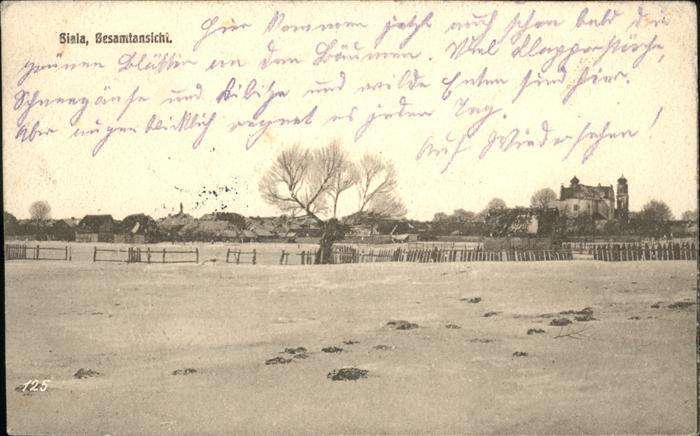 Biala, Gesamtansicht.
Hier kommen jetzt auch schon bald die
grünen Blätter an den Bäumen. Viel Klapperstörche,
Schneegänse und Kibitze und wilde Enten sind hier.
Aber augenblicklich regnet es jeden Tag.
Auf Wiedersehen!
125